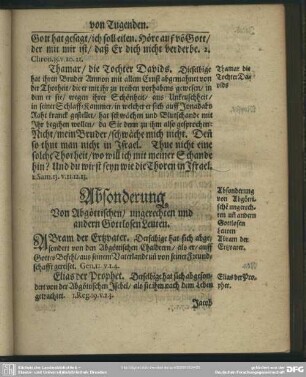 von Tugenden.
Gott hat gesagt / ich soll eilen. Höre auf vö Gott /
der mit mir ist / daß Er dich nicht verderbe. 2.
Chron.35.v.20.21.
Thamar / die Tochter Davids. Dieselbige
hat ihren Bruder Amnon mit allem Ernst abgemahnet von
der Thorheit / die er mit ihr zu treiben vorhabens gewesen / in
dem er sie / wegen ihrer Schönheit / aus Unkeuschheit /
in seiner Schlaff-Kammer / in welcher er sich auff Jonadabs
Raht kranck gestellet / hat schwächen und Blutschande mit
Ihr begehen wollen / da Sie dann zu ihm also gesprochen:
Nicht / mein Bruder / schwäche mich nicht. Den
so thut man nicht in Israel. Thue nicht eine
solche Thorheit / wo will ich mit meiner Schande
hin? Und du wirst seyn wie die Thoren in Israel.
2.Sam.13. v.11.12.13.
Thamar die
Tochter Da-
vids.
Absonderung
Von Abgöttischen / ungerechten und
andern Gottlosen Leuten.
Absonderung
von Abgötti-
schē ungerech-
ten uñ andern
Gottlosen
Leuten
Abram der
Ertzvater.
ABram der Ertzvater. Derselbige hat sich abge-
sondert von den Abgöttischen Chaldeern / als er / auff
Gottes Befehl / aus seinem Vaterlande uñ von seiner Freund-
schafft gereiset. Gen.12. v.1.4.
Elias der Prophet. Derselbige hat sich abgeson-
dert von der Abgöttischen Jsebel / als sie ihm nach dem Leben
getrachtet. 1.Reg.19.v.2.3.
Elias der Pro-
phet.
Jacob